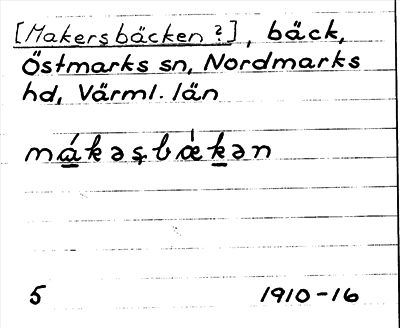 [Makersbäcken ?], bäck,
Östmarks sn, Nordmarks
hd, Värml. län
má̱kəʂbæ̀ḵən
5 1910-16